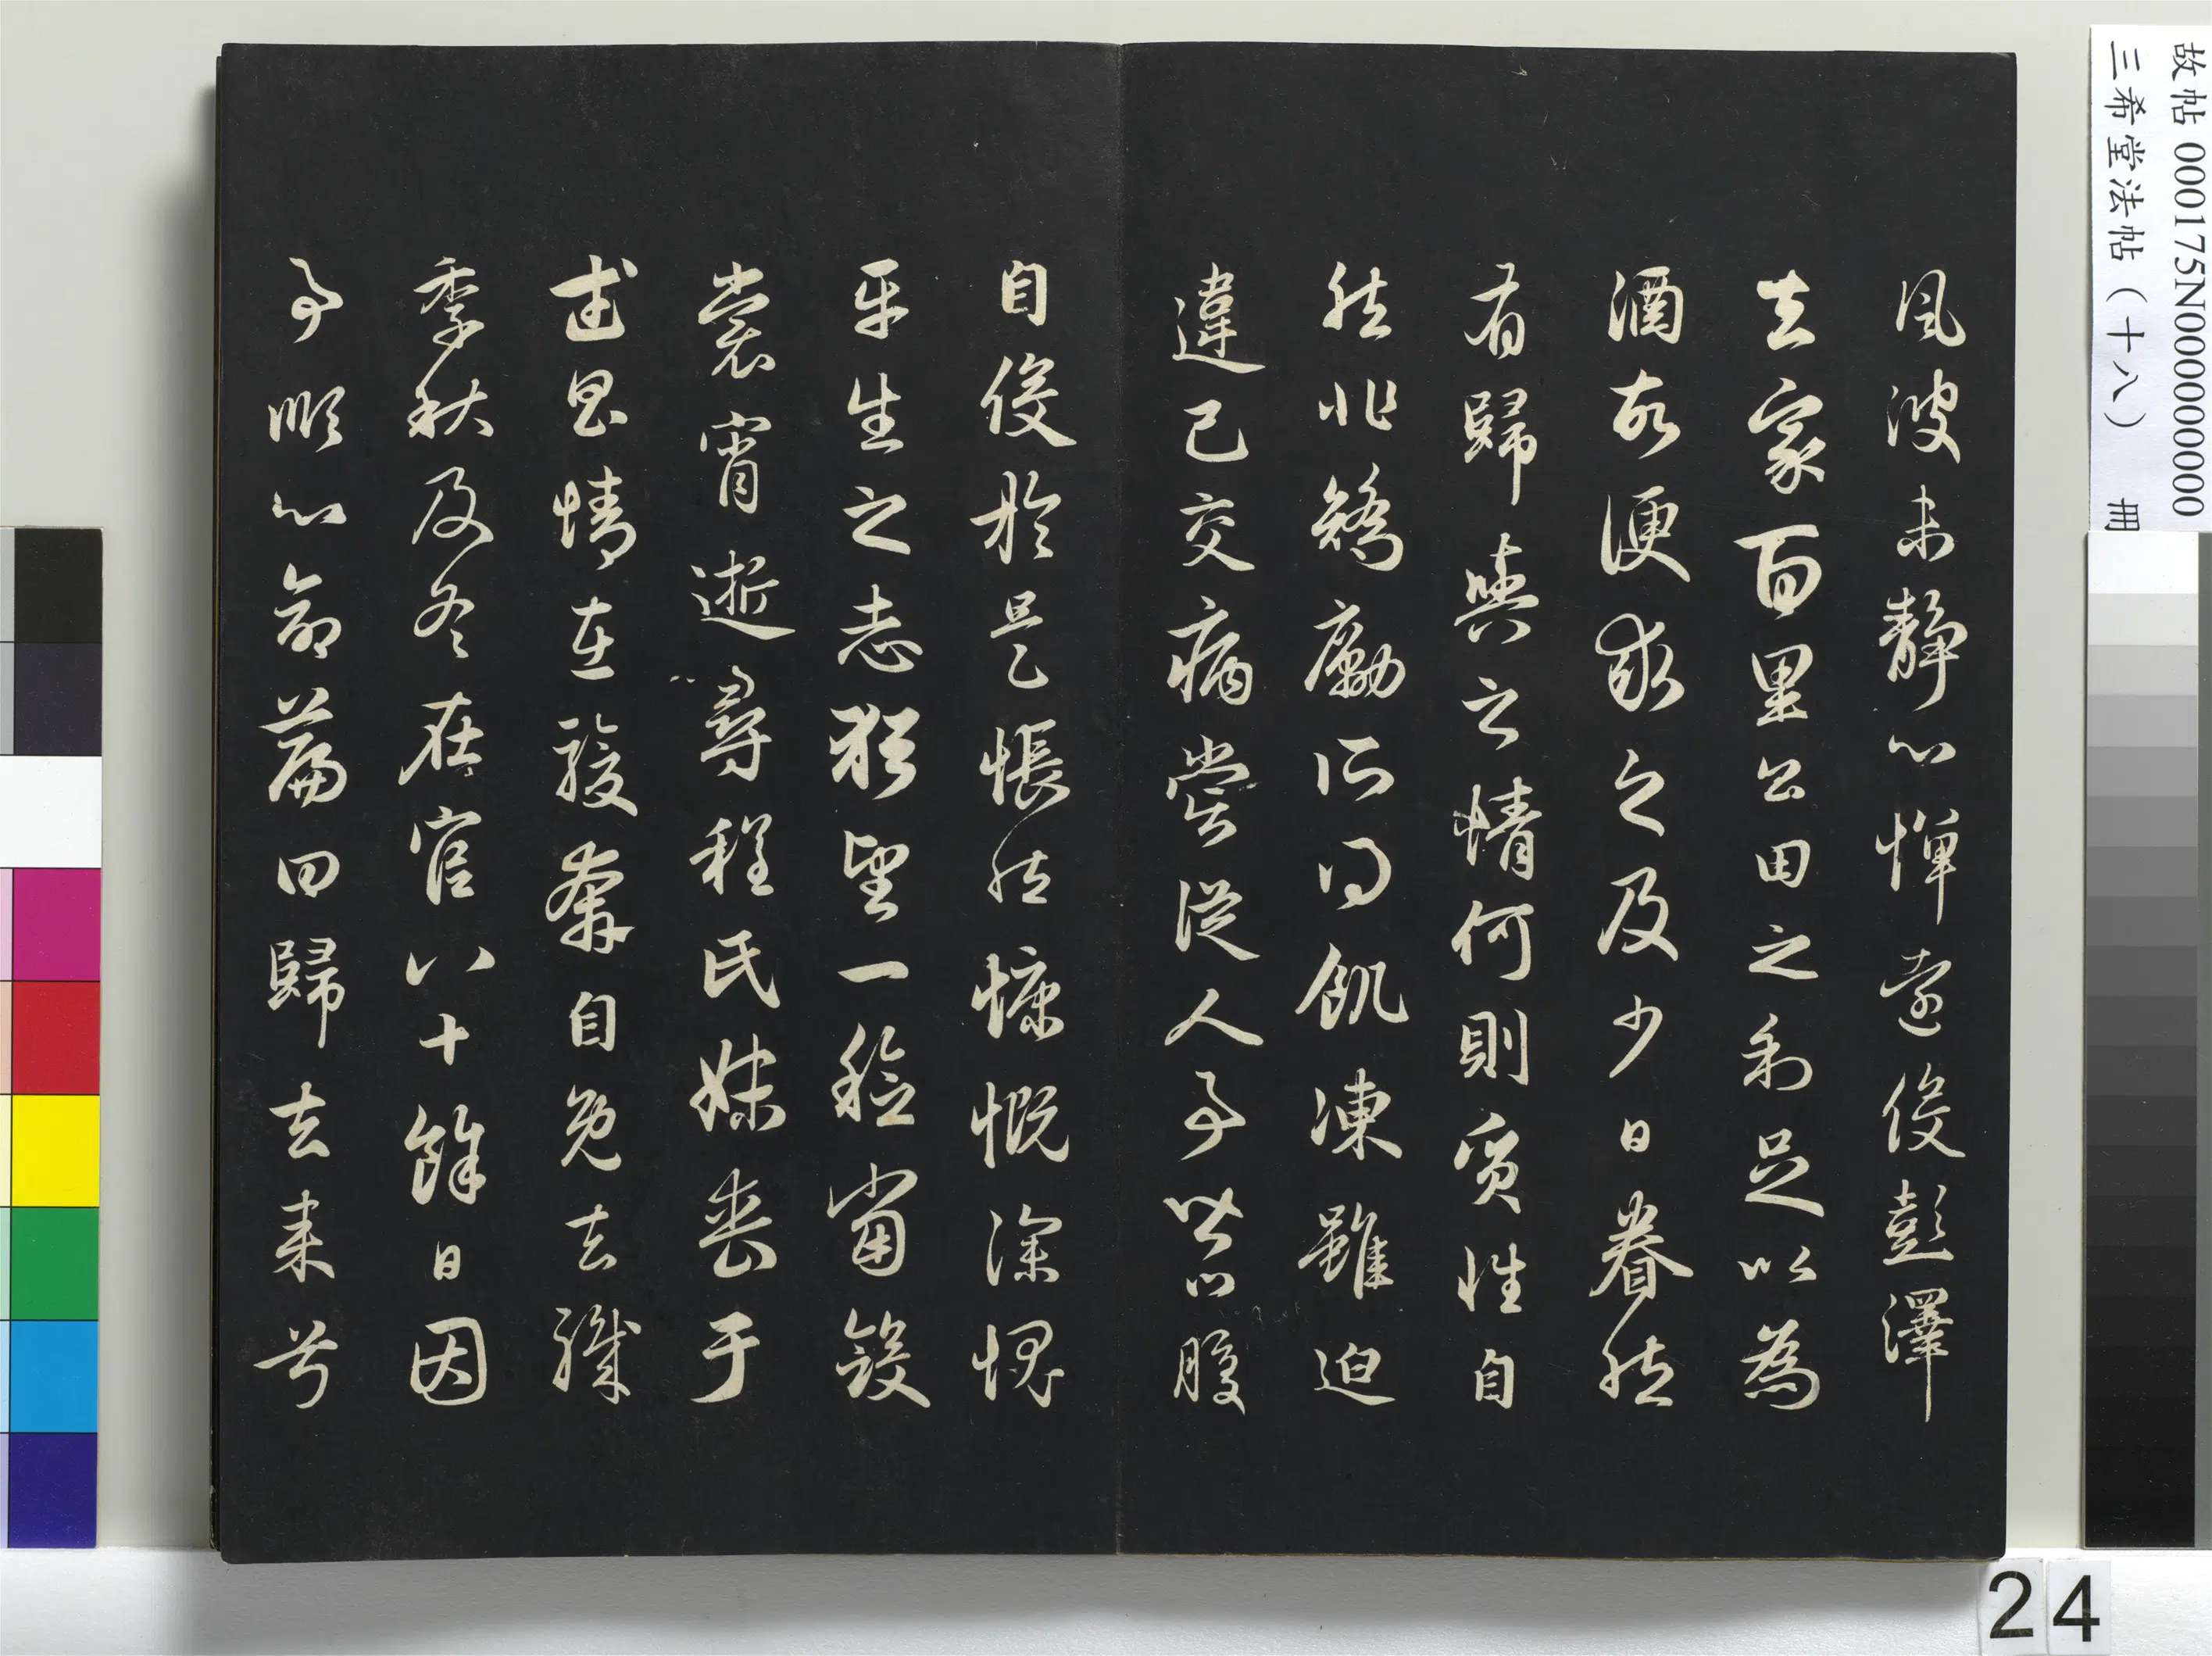 風波未靜心憚遠役彭澤
去家百里公田之利足以為
酒故便求之及少日眷然
有歸與之情何則質性自
然非矯勵所得飢凍雖迫
違己交病嘗從人事皆口腹
自役於是悵然慷慨深愧
平生之志猶望一稔當斂
裳宵逝尋程氏妹喪于
武昌情在駿奔自免去職
季秋及冬在官八十餘日因
事順心命篇曰歸去來兮
故帖 000175N000000000
三希堂法帖（十八） 冊
24